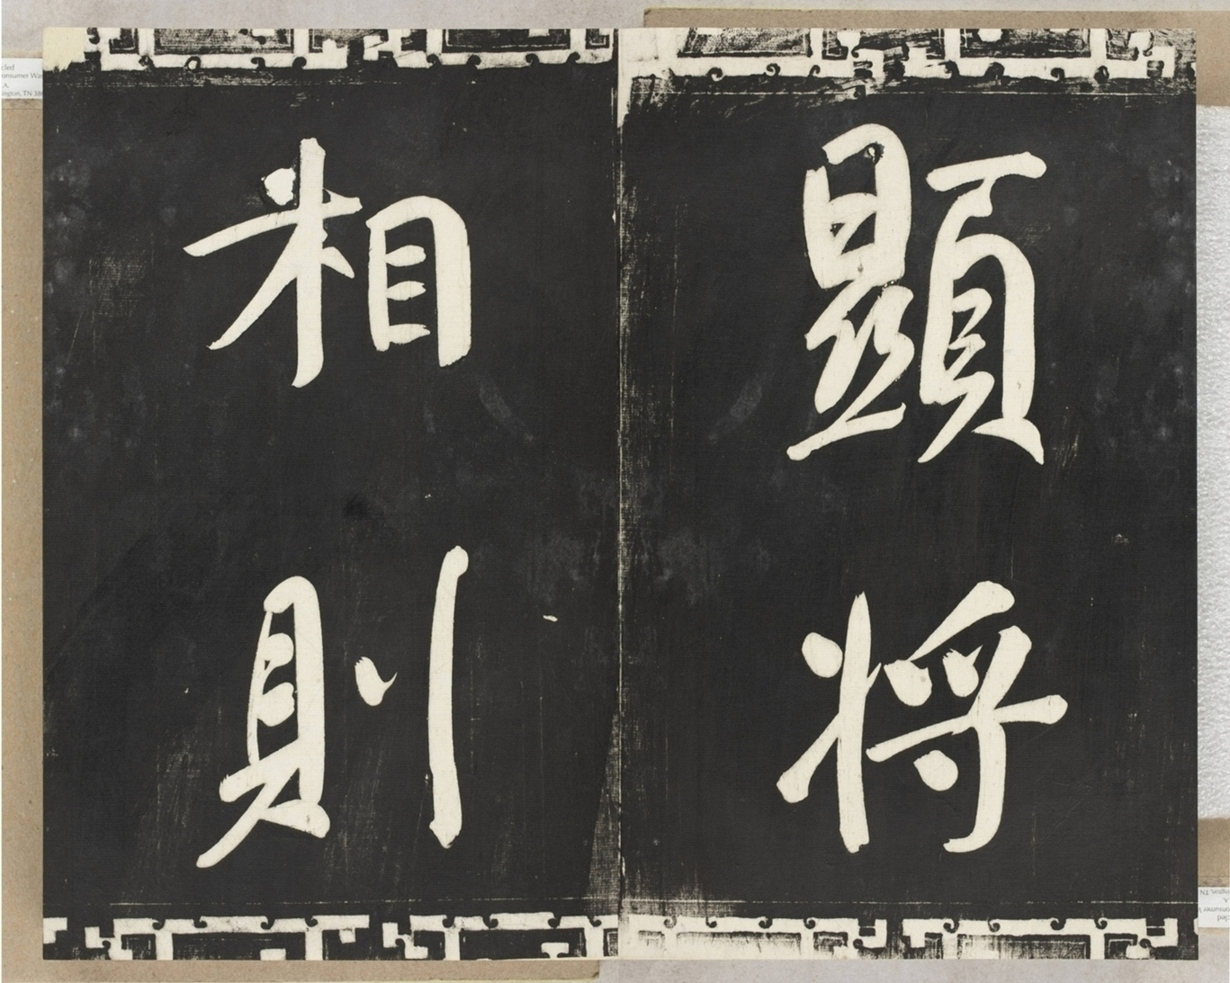 顯將
相則